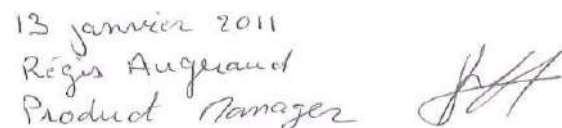 13 janvier 2011
Régis Augeraud
Product Manager